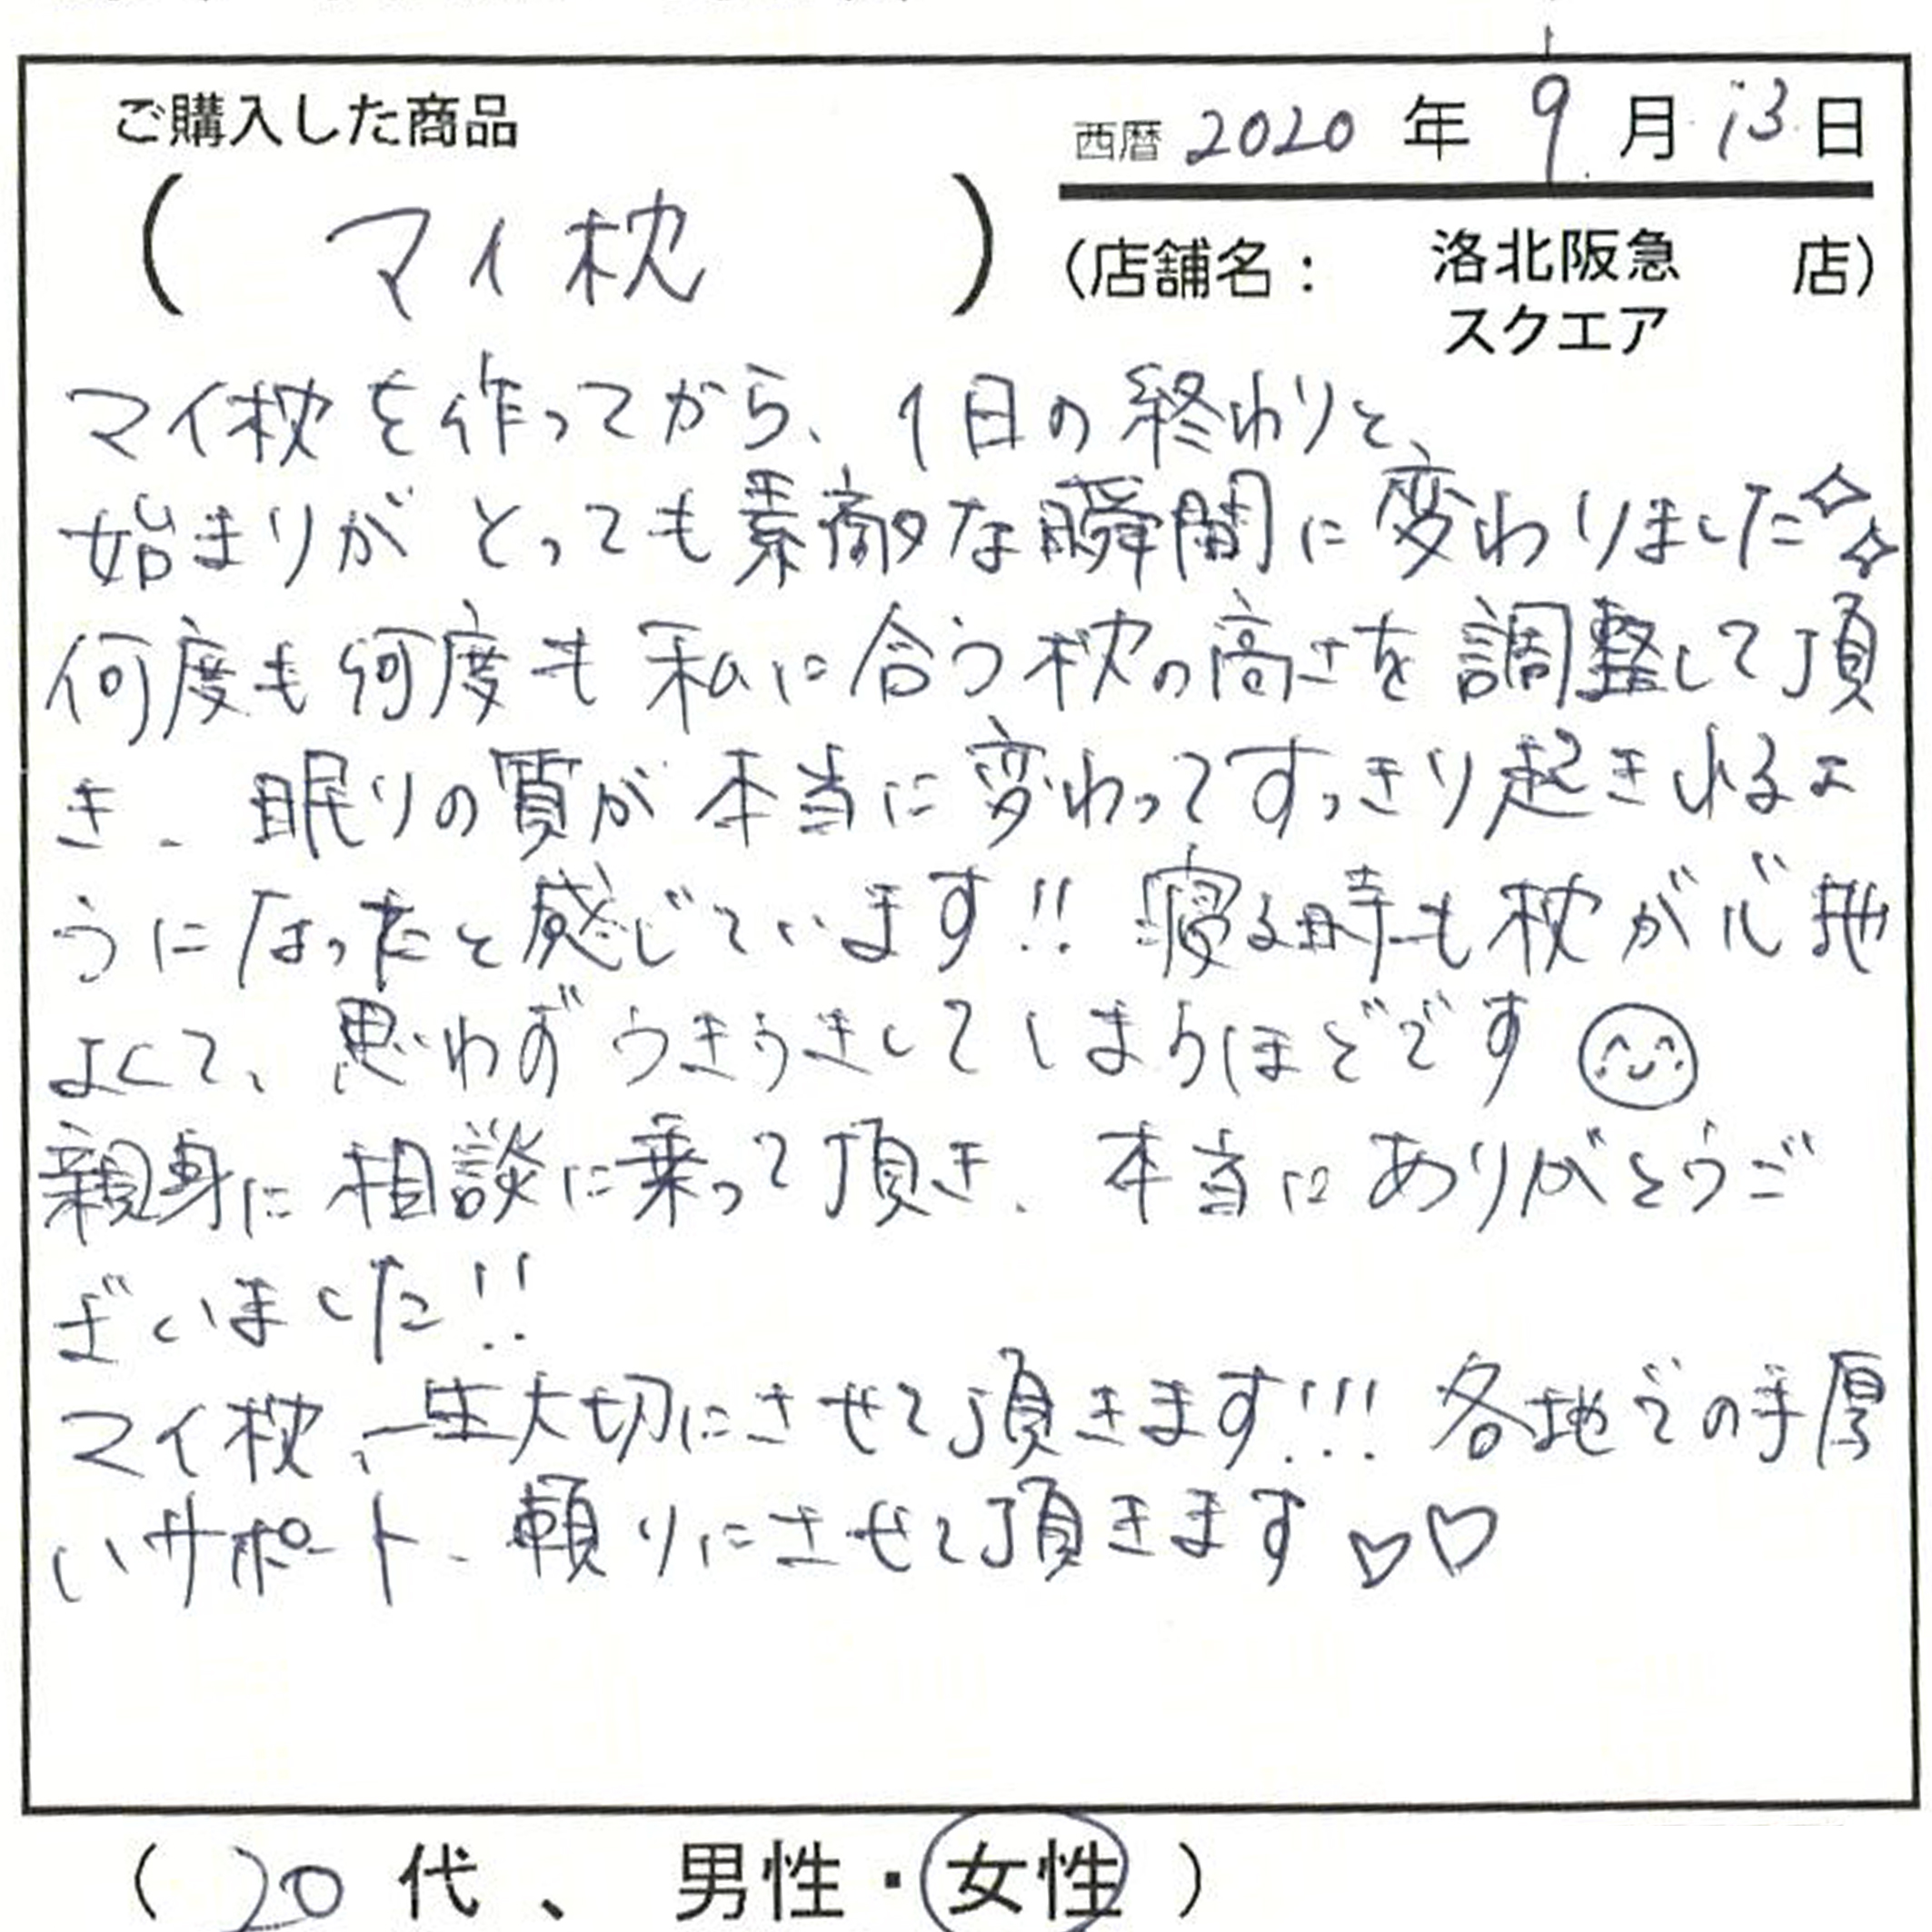 ご購入した商品
西暦 2020 年 9 月 13 日
( マイ枕 )
(店舗名： 洛北阪急スクエア 店)
マイ枕を作ってから、1日の終わりと、
始まりがとっても素敵な瞬間に変わりました✧✧
何度も何度も私に合う枕の高さを調整して頂
き、眠りの質が本当に変わってすっきり起きれるよ
うになったと感じています!! 寝る時も枕が心地
よくて、思わずうきうきしてしまうほどです
親身に相談に乗って頂き、本当にありがとうご
ざいました!!
マイ枕、一生大切にさせて頂きます!!! 各地での手厚
いサポート、頼りにさせて頂きます♡♡
( 20 代、 男性・女性 )